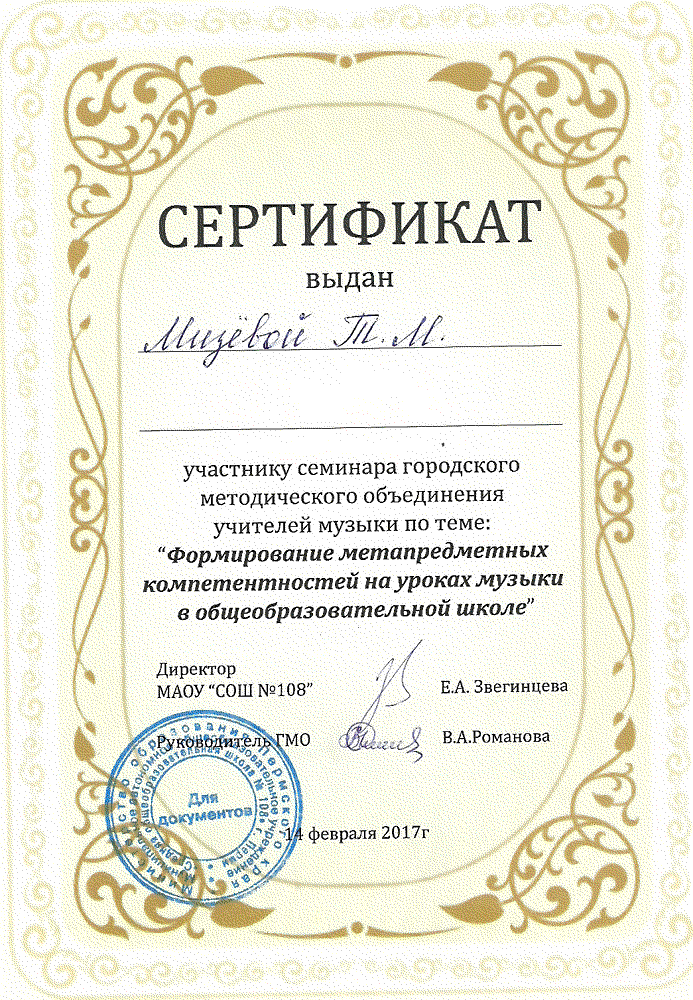 СЕРТИФИКАТ
выдан
Мизёвой Т.М.
участнику семинара городского
методического объединения
учителей музыки по теме:
“Формирование метапредметных
компетентностей на уроках музыки
в общеобразовательной школе”
Директор
МАОУ “СОШ №108”
Е.А. Звегинцева
Руководитель ГМО
В.А.Романова
Министерство образования Пермского края
Муниципальное автономное общеобразовательное учреждение
Средняя общеобразовательная школа № 108 г. Перми
Для
документов
14 февраля 2017г